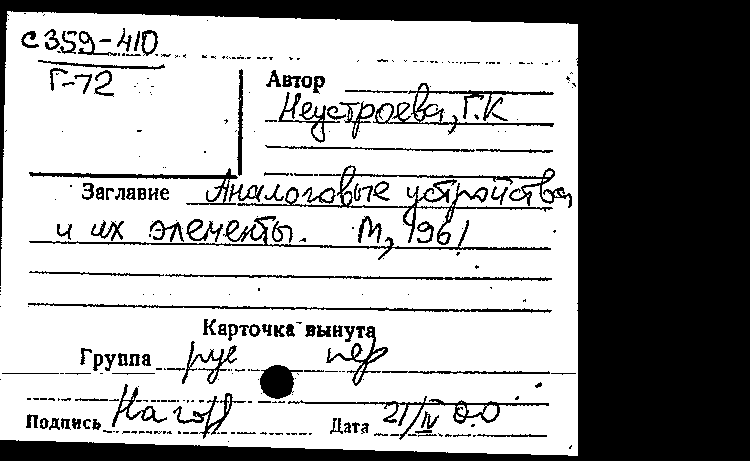 с 359-410
Г-72
Автор
Неустроева, Г.К
Заглавие Аналоговые устройства
и их элементы. М, 1961
Карточка вынута
Группа рус пер
Подпись
Дата 21/IV 00